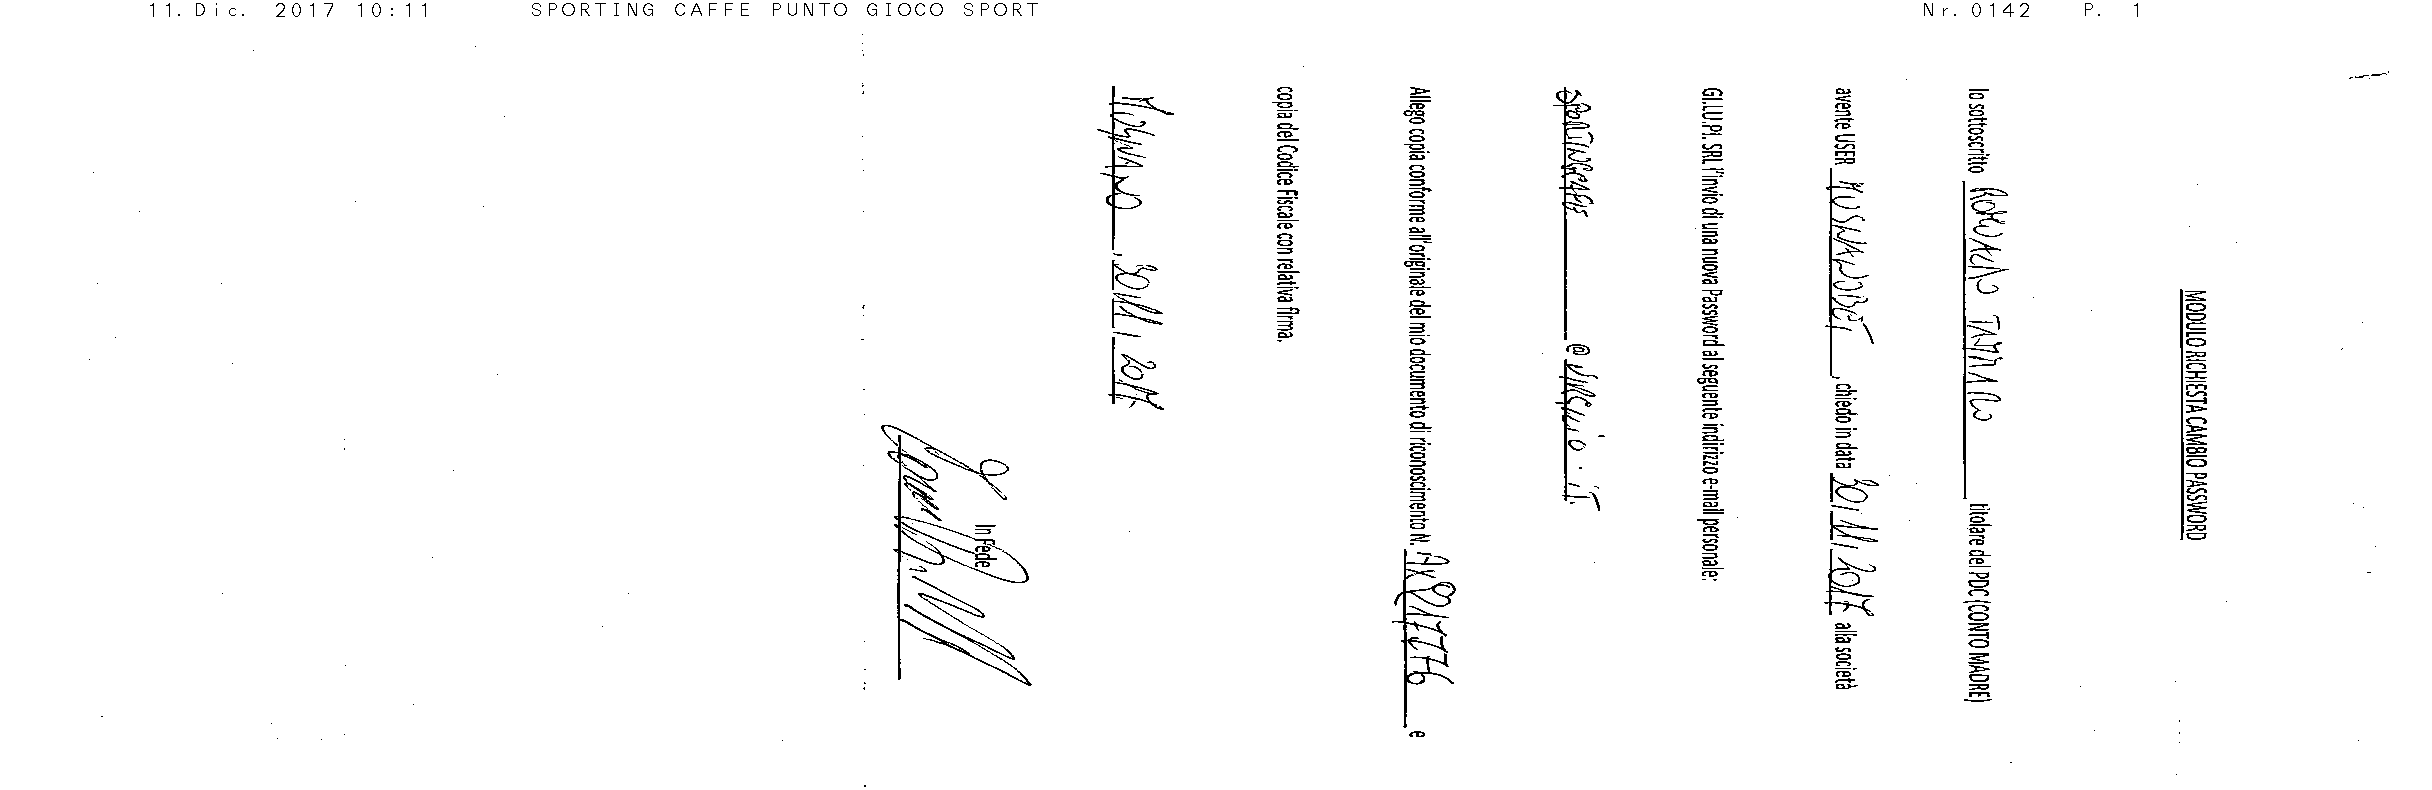 11. Dic. 2017 10:11 SPORTING CAFFE PUNTO GIOCO SPORT Nr. 0142 P. 1
MODULO RICHIESTA CAMBIO PASSWORD
Io sottoscritto TAMMARO titolare del PDC (CONTO MADRE)
avente USER , chiedo in data 30/11/2017 alla società
GI.LU.PI. SRL l'invio di una nuova Password al seguente indirizzo e-mail personale:
SPORTINGCAFFE @ VIRGILIO.IT
Allego copia conforme all'originale del mio documento di riconoscimento N. e
copia del Codice Fiscale con relativa firma.
MUGNANO, 30/11/2017
In Fede